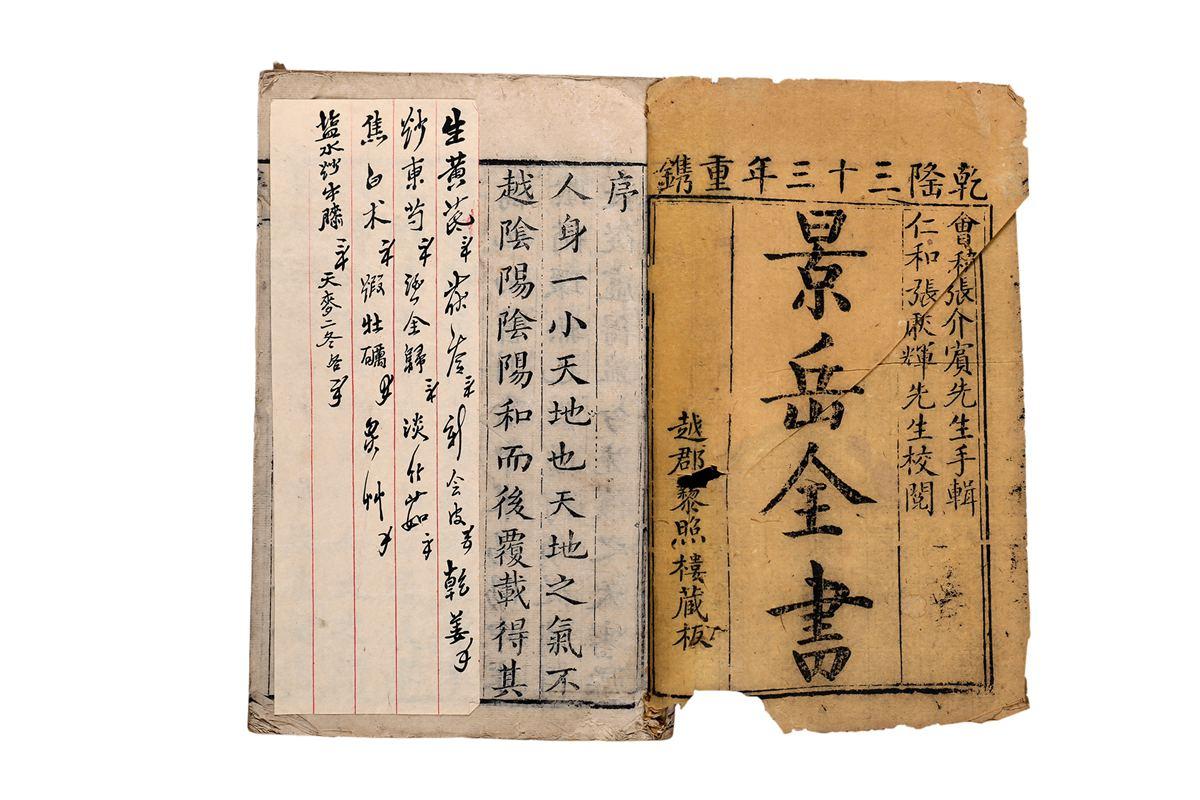 乾隆三十三年重鐫
會稽張介賓先生手輯
仁和張厥輝先生校閱
景岳全書
越郡黎照樓藏板
序
人身一小天地也天地之氣不
越陰陽陰陽和而後覆載得其
生黃芪 会皮 乾姜
炒東芍 全歸 淡竹茹
焦白术 煅牡礪 炙艸
盐水炒牛膝 天麥二冬各